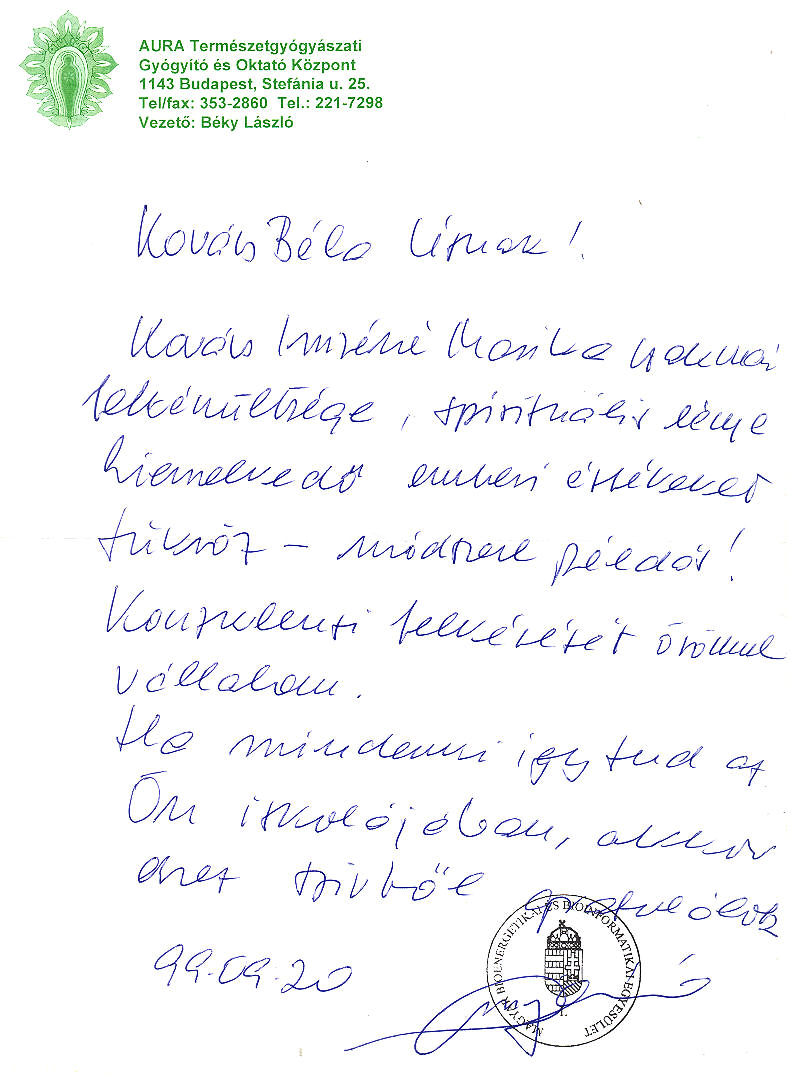 AURA Természetgyógyászati
Gyógyító és Oktató Központ
1143 Budapest, Stefánia u. 25.
Tel/fax: 353-2860 Tel.: 221-7298
Vezető: Béky László
Kovács Béla Úrnak!
Kovács Imréné Marika szakmai
felkészültsége, spirituális lénye
kiemelkedő emberi értékeket
tükröz – módszere példás!
Konzulensi felkérését örömmel
vállalom.
Ha mindenki így tud az
Ön iskolájában, akkor
ehhez szívből gratulálok
99.09.20
MAGYAR BIOENERGETIKAI ÉS BIOINFORMATIKAI EGYESÜLET
1.